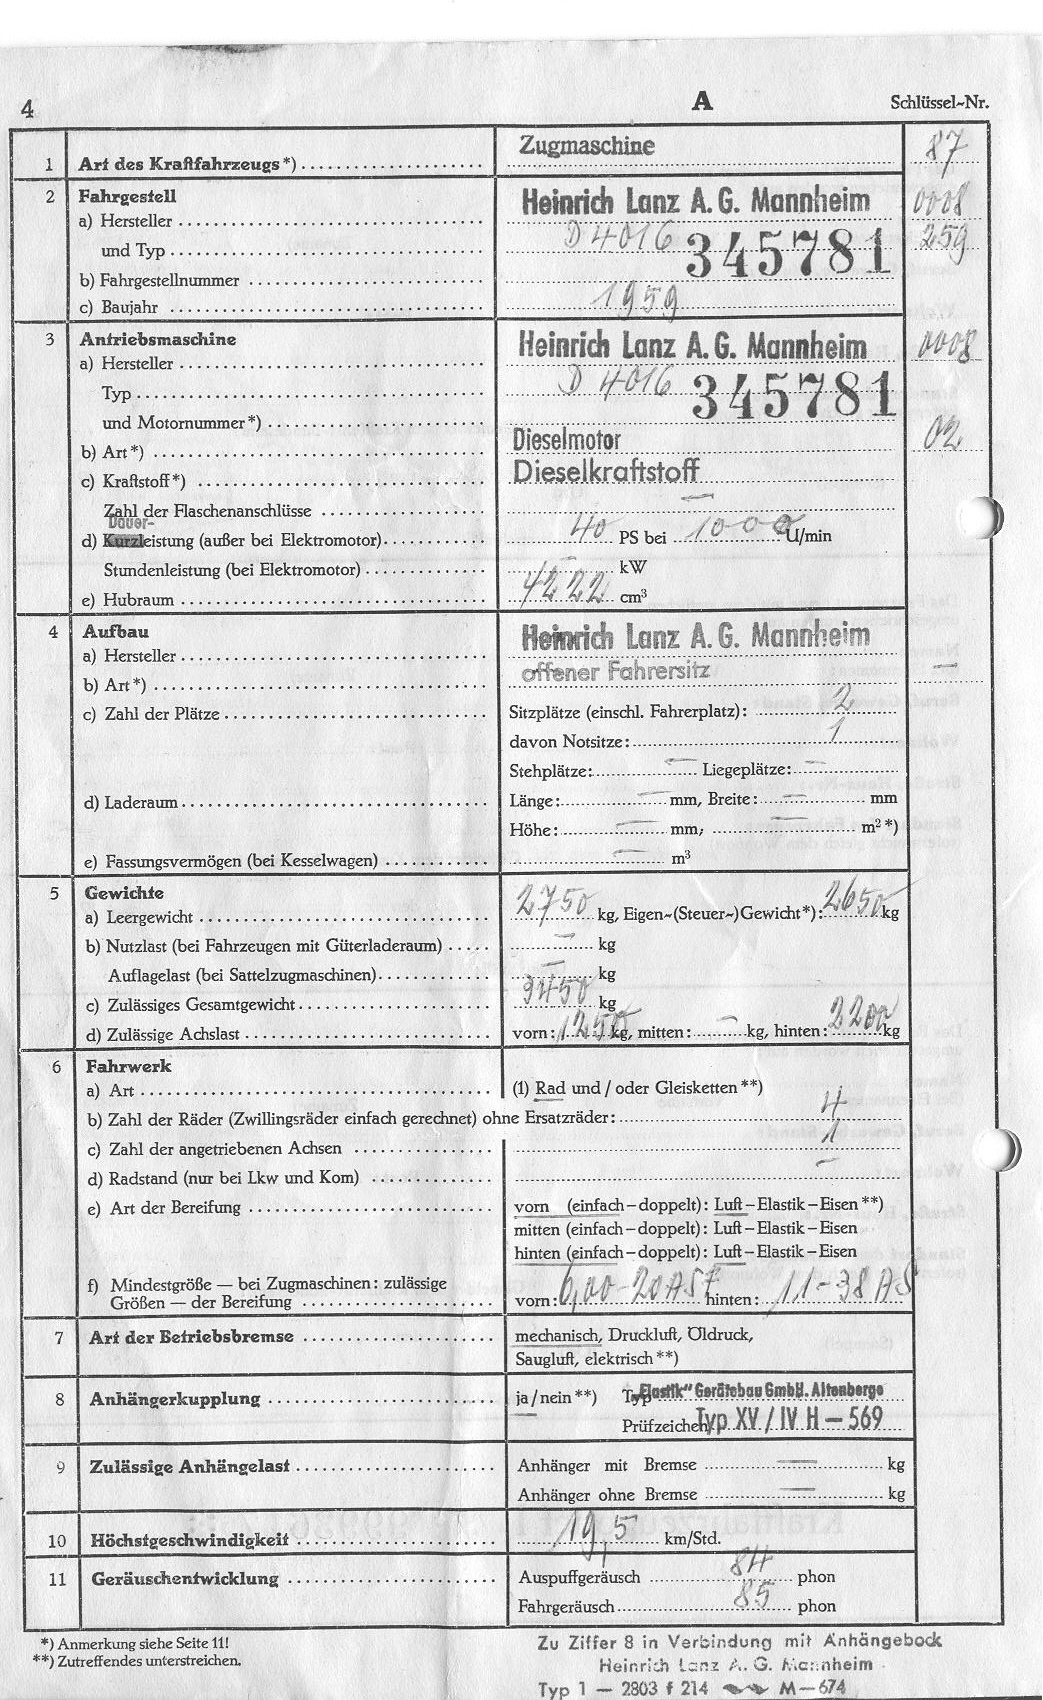 4 A Schlüssel-Nr.
1 Art des Kraftfahrzeugs*) Zugmaschine 87
2 Fahrgestell
a) Hersteller Heinrich Lanz A.G. Mannheim 0008
und Typ D 4016 259
b) Fahrgestellnummer 345781
c) Baujahr 1959
3 Antriebsmaschine
a) Hersteller Heinrich Lanz A.G. Mannheim 0008
Typ D 4016
und Motornummer*) 345781
b) Art*) Dieselmotor 02
c) Kraftstoff*) Dieselkraftstoff
Zahl der Flaschenanschlüsse —
Dauer-
d) Kurzleistung (außer bei Elektromotor) 40 PS bei 1000 U/min
Stundenleistung (bei Elektromotor) — kW
e) Hubraum 4222 cm³
4 Aufbau
a) Hersteller Heinrich Lanz A.G. Mannheim
b) Art*) offener Fahrersitz —
c) Zahl der Plätze Sitzplätze (einschl. Fahrerplatz): 2
davon Notsitze: 1
Stehplätze: — Liegeplätze: —
d) Laderaum Länge: — mm, Breite: — mm
Höhe: — mm, — m² *)
e) Fassungsvermögen (bei Kesselwagen) — m³
5 Gewichte
a) Leergewicht 2750 kg, Eigen-(Steuer-)Gewicht*): 2650 kg
b) Nutzlast (bei Fahrzeugen mit Güterladeraum) — kg
Auflagelast (bei Sattelzugmaschinen) — kg
c) Zulässiges Gesamtgewicht 3450 kg
d) Zulässige Achslast vorn: 1250 kg, mitten: — kg, hinten: 2200 kg
6 Fahrwerk
a) Art (1) Rad und / oder Gleisketten **)
b) Zahl der Räder (Zwillingsräder einfach gerechnet) ohne Ersatzräder: 4
c) Zahl der angetriebenen Achsen 1
d) Radstand (nur bei Lkw und Kom) —
e) Art der Bereifung vorn (einfach – doppelt): Luft – Elastik – Eisen **)
mitten (einfach – doppelt): Luft – Elastik – Eisen
hinten (einfach – doppelt): Luft – Elastik – Eisen
f) Mindestgröße — bei Zugmaschinen: zulässige
Größen — der Bereifung vorn: 6,00-20 ASF hinten: 11-38 AS
7 Art der Betriebsbremse mechanisch, Druckluft, Öldruck,
Saugluft, elektrisch **)
8 Anhängerkupplung ja / nein **) Typ „Elastik" Gerätebau GmbH. Altenberge
Prüfzeichen Typ XV / IV H – 569
9 Zulässige Anhängelast Anhänger mit Bremse — kg
Anhänger ohne Bremse — kg
10 Höchstgeschwindigkeit 19,5 km/Std.
11 Geräuschentwicklung Auspuffgeräusch 84 phon
Fahrgeräusch 85 phon
*) Anmerkung siehe Seite 11!
**) Zutreffendes unterstreichen.
Zu Ziffer 8 in Verbindung mit Anhängebock
Heinrich Lanz A. G. Mannheim
Typ 1 — 2803 f 214 M—674